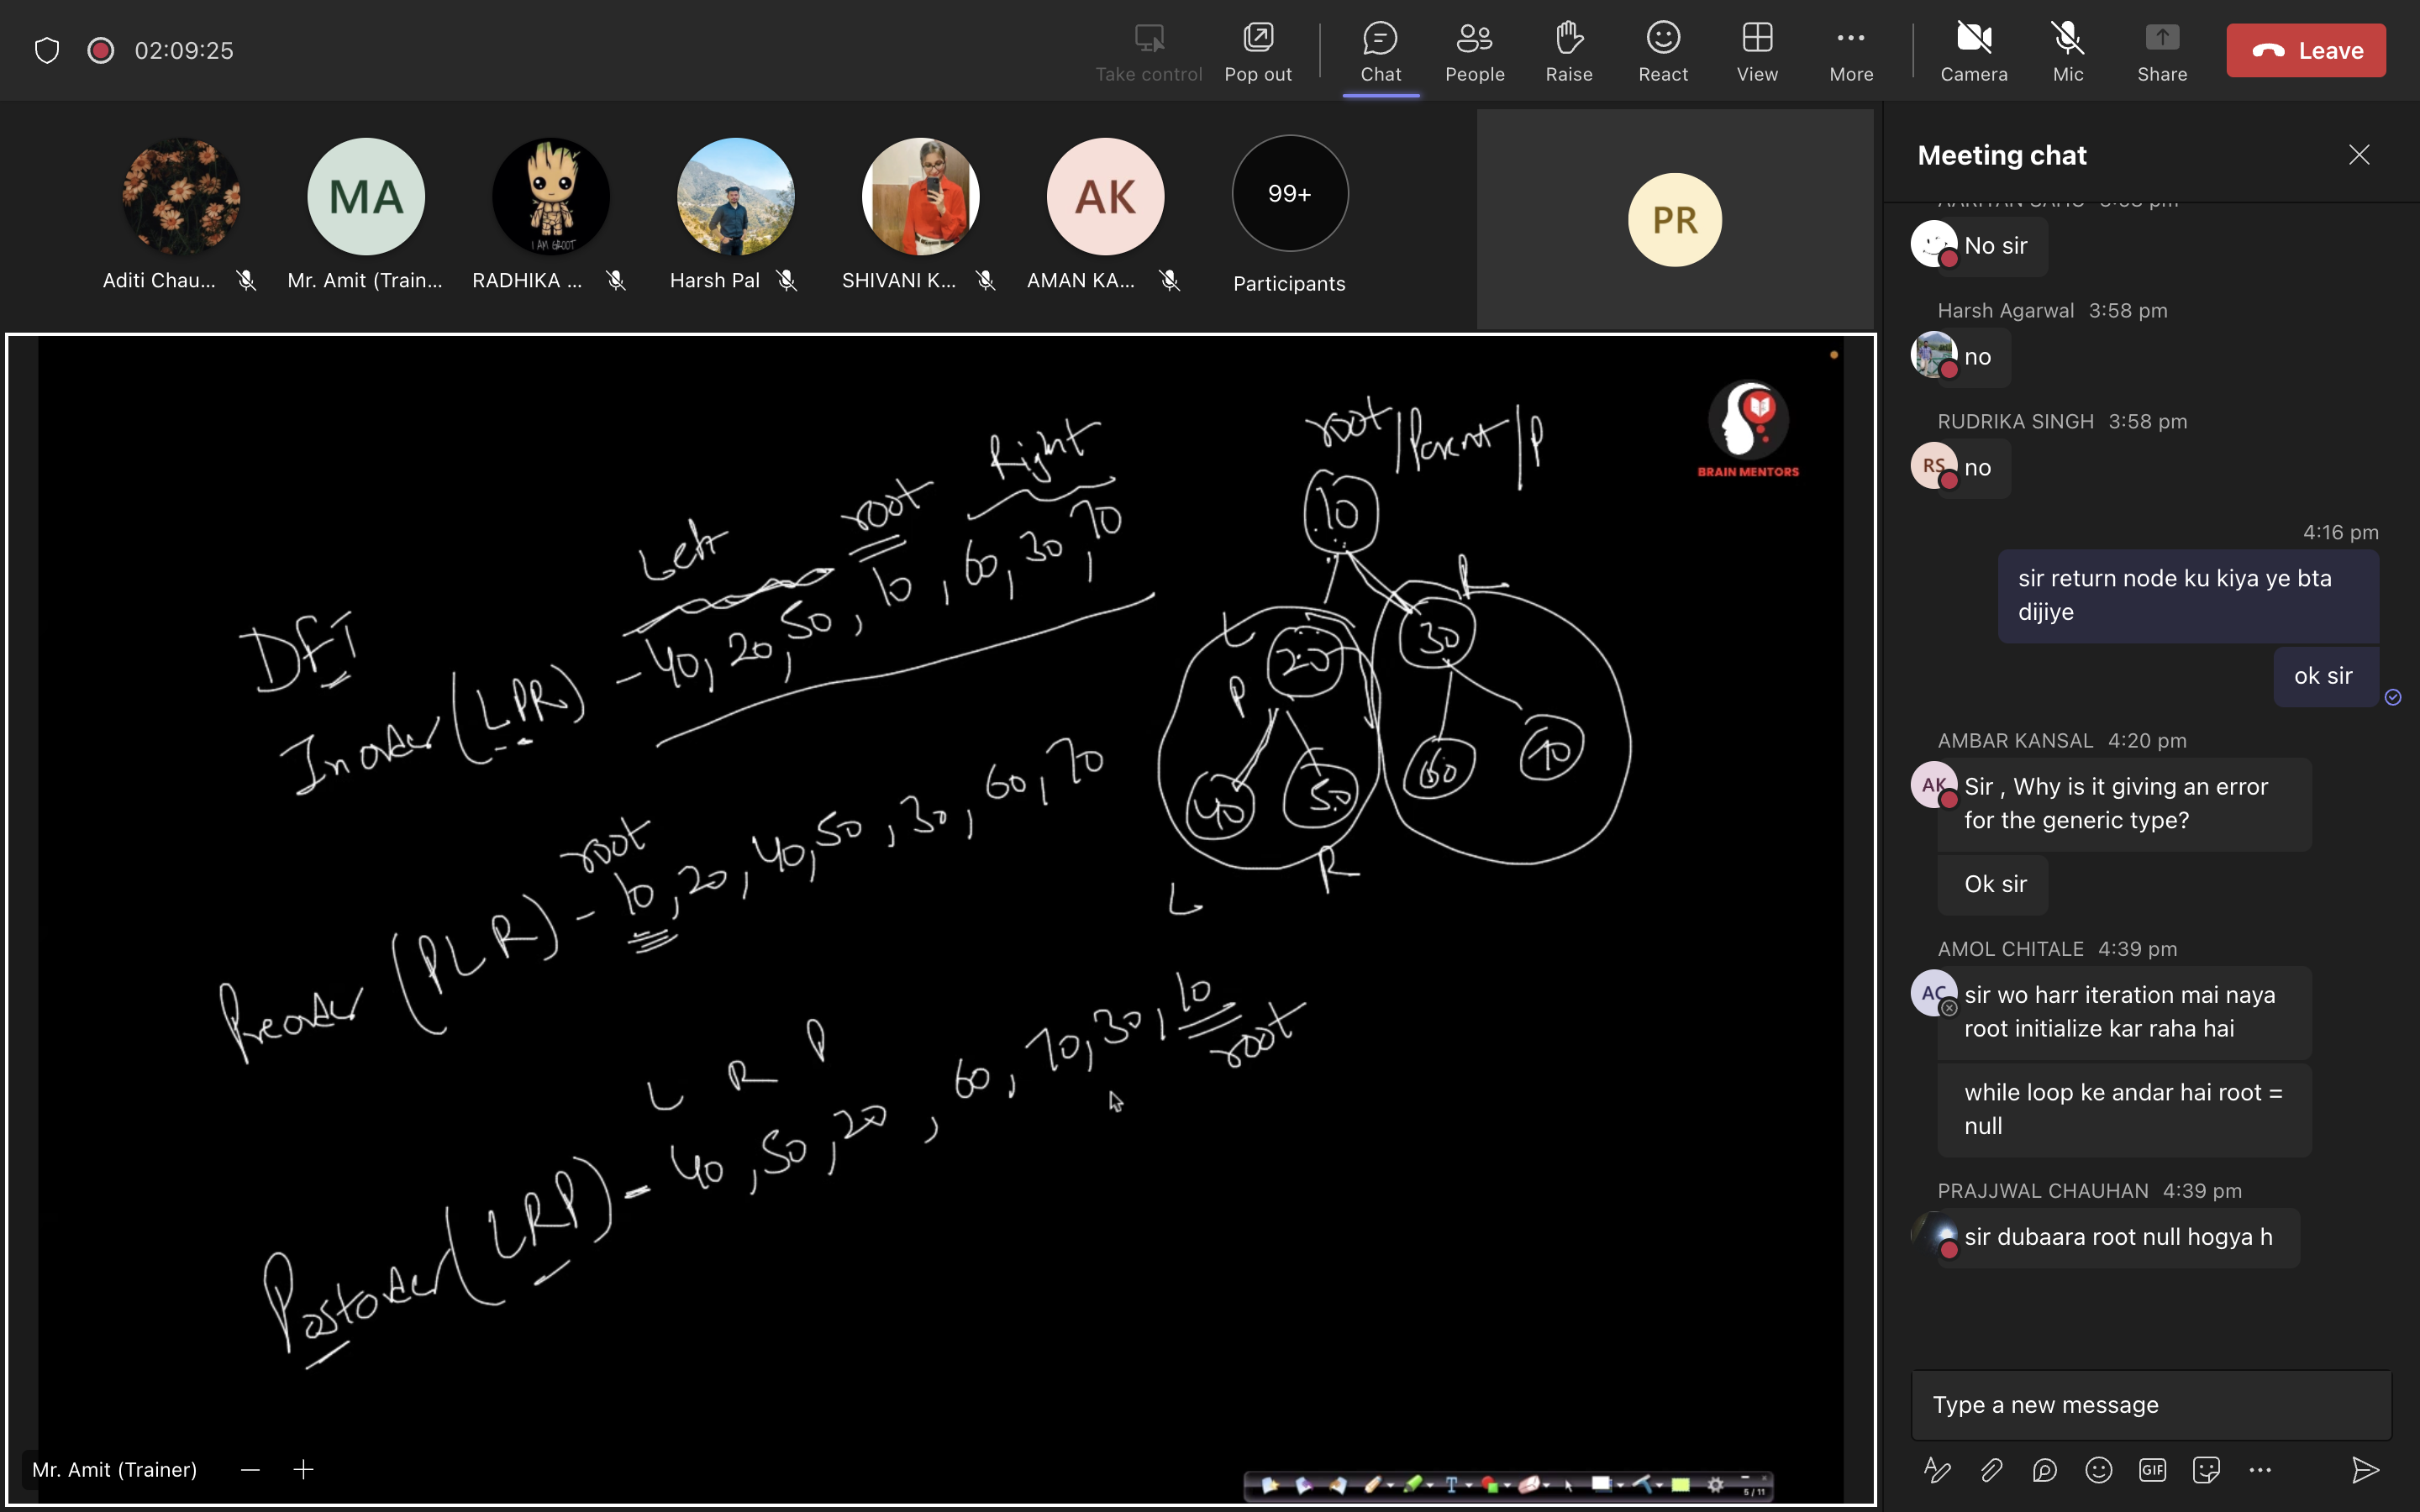 02:09:25
Take control
Pop out
Chat
People
Raise
React
View
More
Camera
Mic
Share
Leave
MA
I AM GROOT
AK
99+
PR
Aditi Chau...
Mr. Amit (Train...
RADHIKA ...
Harsh Pal
SHIVANI K...
AMAN KA...
Participants
BRAIN MENTORS
DFT
Left
root
Right
Inorder (LPR) - 40, 20, 50, 10, 60, 30, 70
root
Preorder (PLR) - 10, 20, 40, 50, 30, 60, 70
L R P
Postorder (LRP) - 40, 50, 20, 60, 70, 30, 10
root
root/Parent/P
10
L
R
20
30
P
40
50
60
70
L
R
Mr. Amit (Trainer)
5 / 11
Meeting chat
No sir
Harsh Agarwal 3:58 pm
no
RUDRIKA SINGH 3:58 pm
RS
no
4:16 pm
sir return node ku kiya ye bta
dijiye
ok sir
AMBAR KANSAL 4:20 pm
AK
Sir , Why is it giving an error
for the generic type?
Ok sir
AMOL CHITALE 4:39 pm
AC
sir wo harr iteration mai naya
root initialize kar raha hai
while loop ke andar hai root =
null
PRAJJWAL CHAUHAN 4:39 pm
sir dubaara root null hogya h
Type a new message
GIF